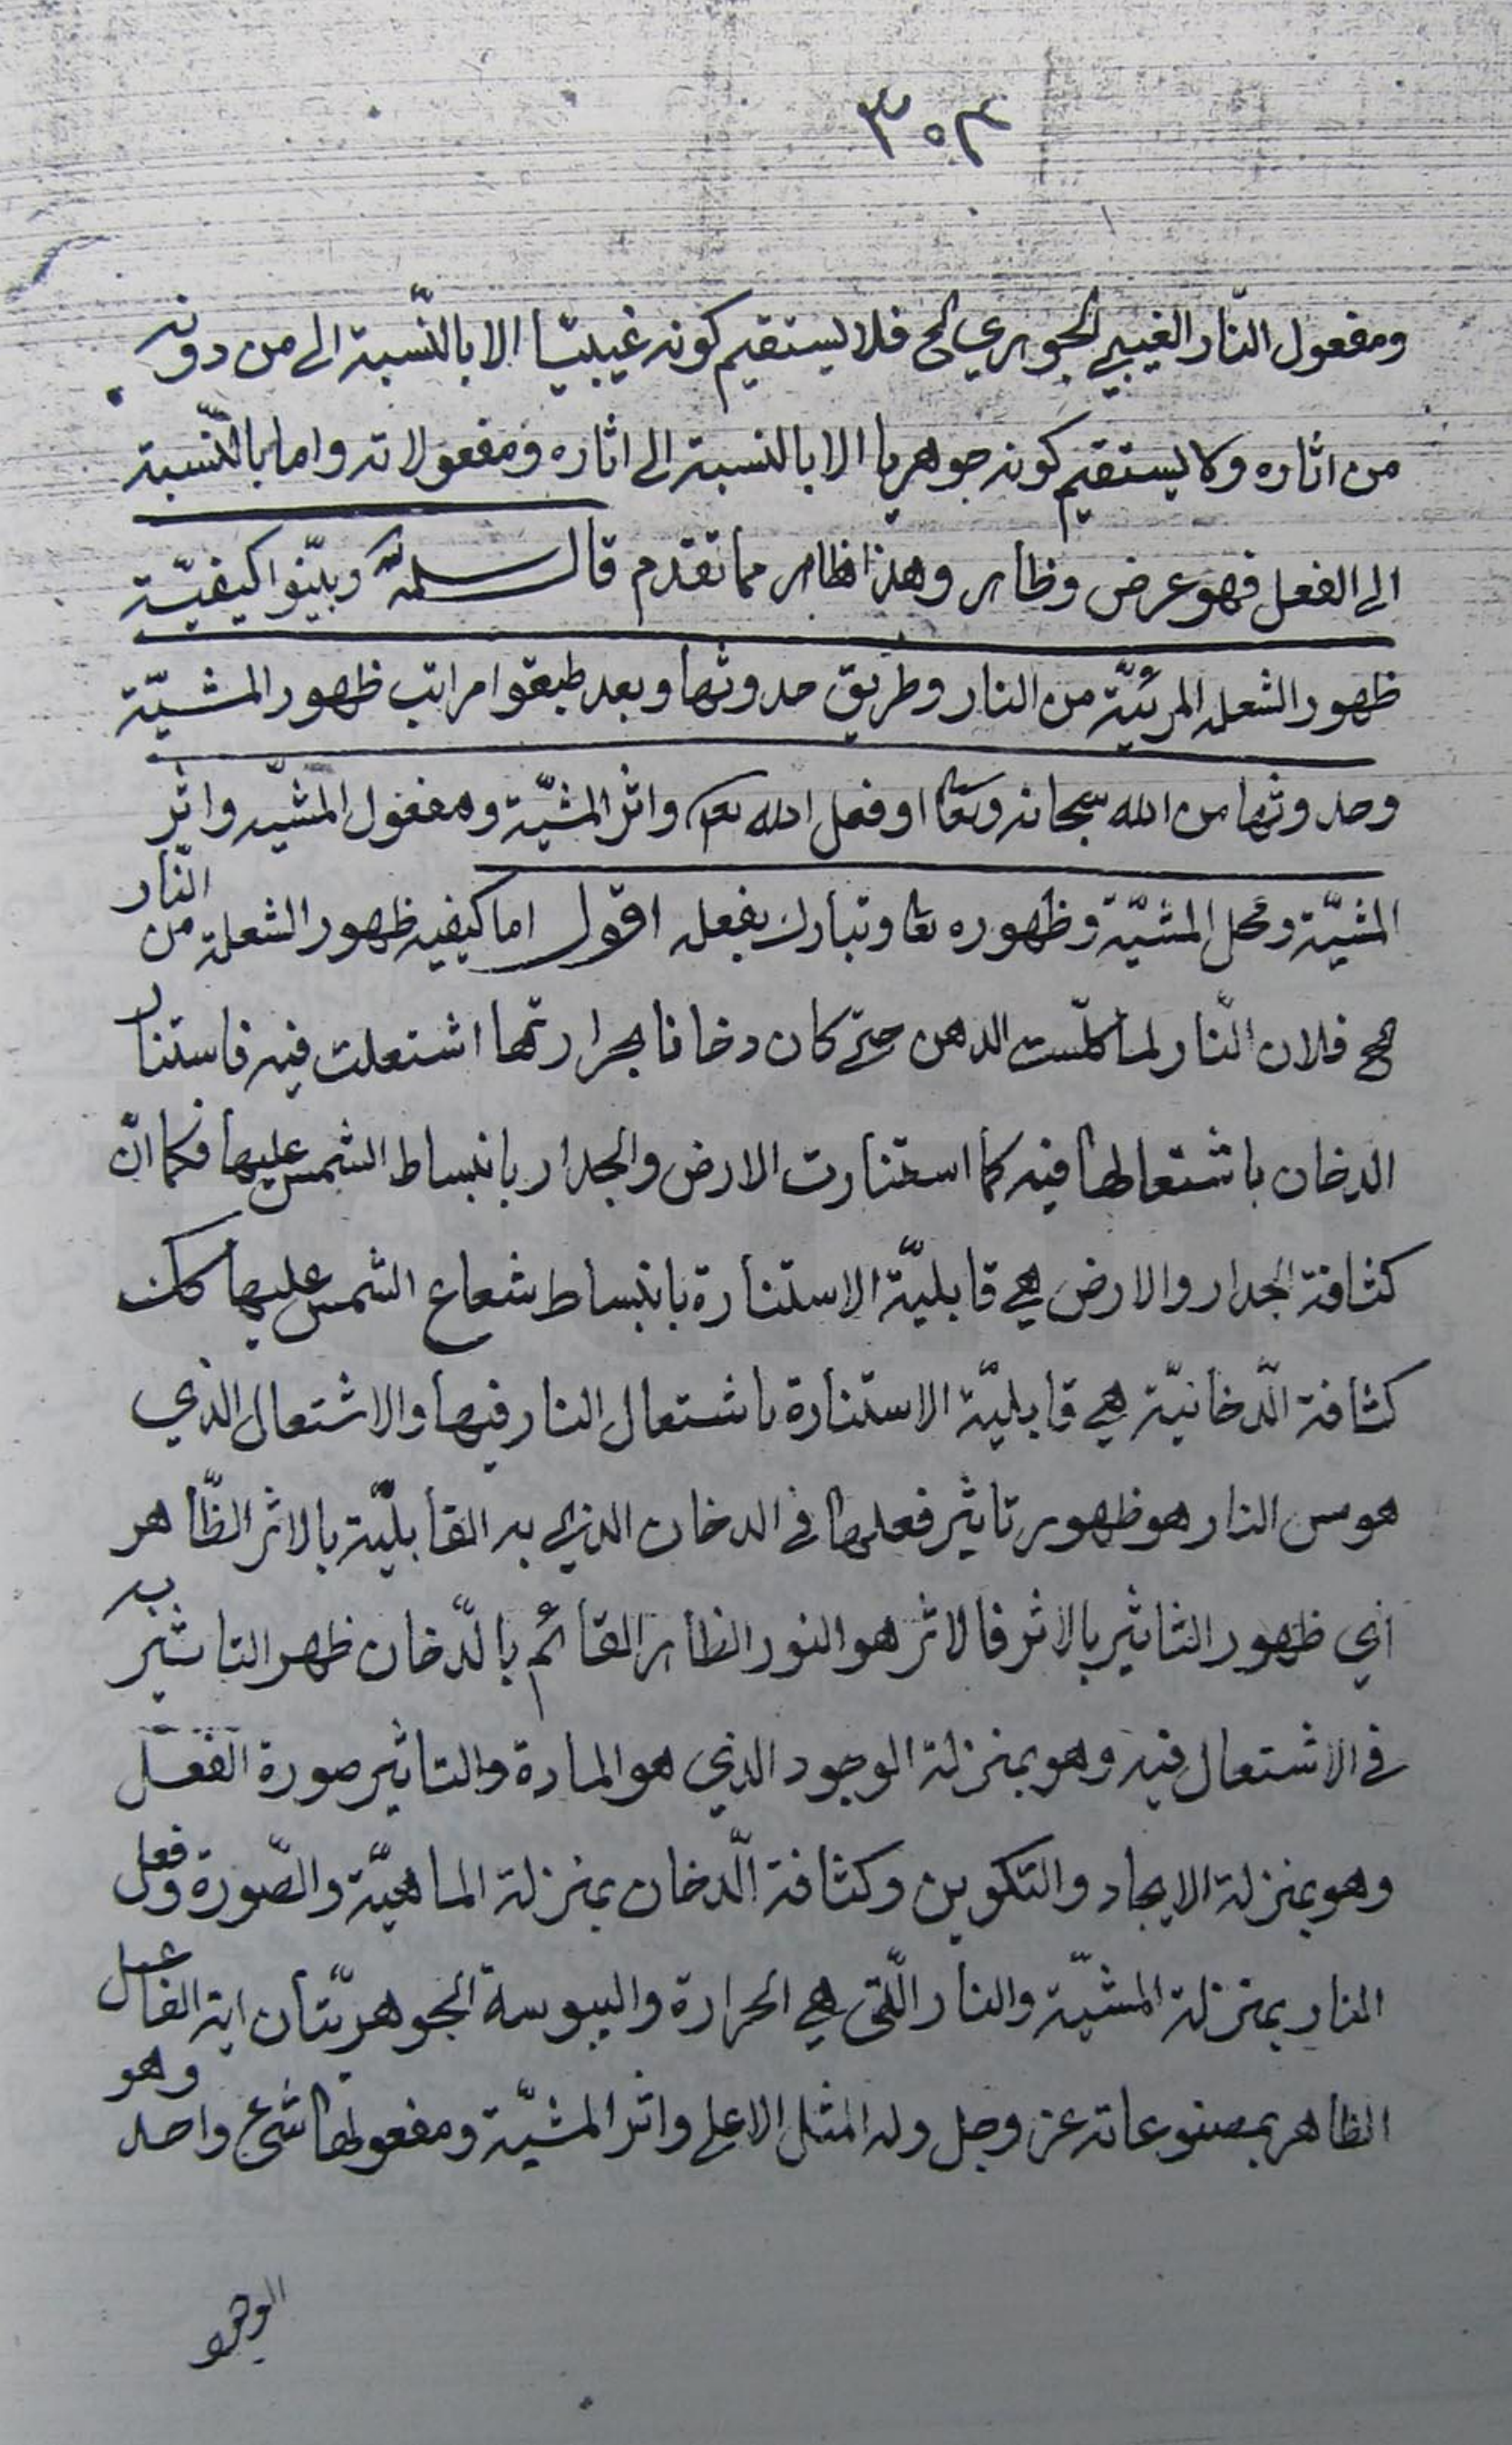 ٣٥٣
ومفعول النّار الغيبي الجوهري الخ فلا يستقيم كونه غيبيّا الا بالنّسبة الى من دونه
من اثاره ولا يستقيم كونه جوهريا الا بالنسبة الى اثاره ومفعولاته واما بالنّسبة
الى الفعل فهو عرض وظاهر وهذا ظاهر مما تقدم قال سلمه وبيّنوا كيفيّة
ظهور الشعلة المرئيّة من النار وطريق حدوثها وبعد طبقوا مراتب ظهور المشيّة
وحدوثها من الله سبحانه وتعا او فعل الله تعا واثر المشيّة ومفعول المشيّة واثر
المشيّة ومحل المشيّة وظهوره تعا وتبارك بفعله اقول اما كيفية ظهور الشعلة من النّار
فلان النّار لما كلّست الدهن حتى كان دخانا بحرارتها اشتعلت فيه فاستنار
الدخان باشتعالها فيه كما استنارت الارض والجدار بانبساط الشمس عليها فكما انّ
كثافة الجدار والارض هي قابليّة الاستنارة بانبساط شعاع الشمس عليها كانت
كثافة الدّخانيّة هي قابليّة الاستنارة باشتعال النار فيها والاشتعال الذي
هو مس النار هو ظهور تاثير فعلها في الدخان الذي به القابليّة بالاثر الظّاهر
اي ظهور التاثير بالاثر فالاثر هو النور الظاهر القائم بالدّخان ظهر التاثير به
في الاشتعال فيه وهو بمنزلة الوجود الذي هو المادة والتاثير صورة الفعل
وهو بمنزلة الايجاد والتكوين وكثافة الدّخان بمنزلة الماهيّة والصّورة وفعل
النار بمنزلة المشيّة والنار الّتي هي الحرارة واليبوسة الجوهريّتان اية الفاعل
الظاهر بمصنوعاته عز وجل وله المثل الاعلى واثر المشيّة ومفعولها شيء واحد وهو